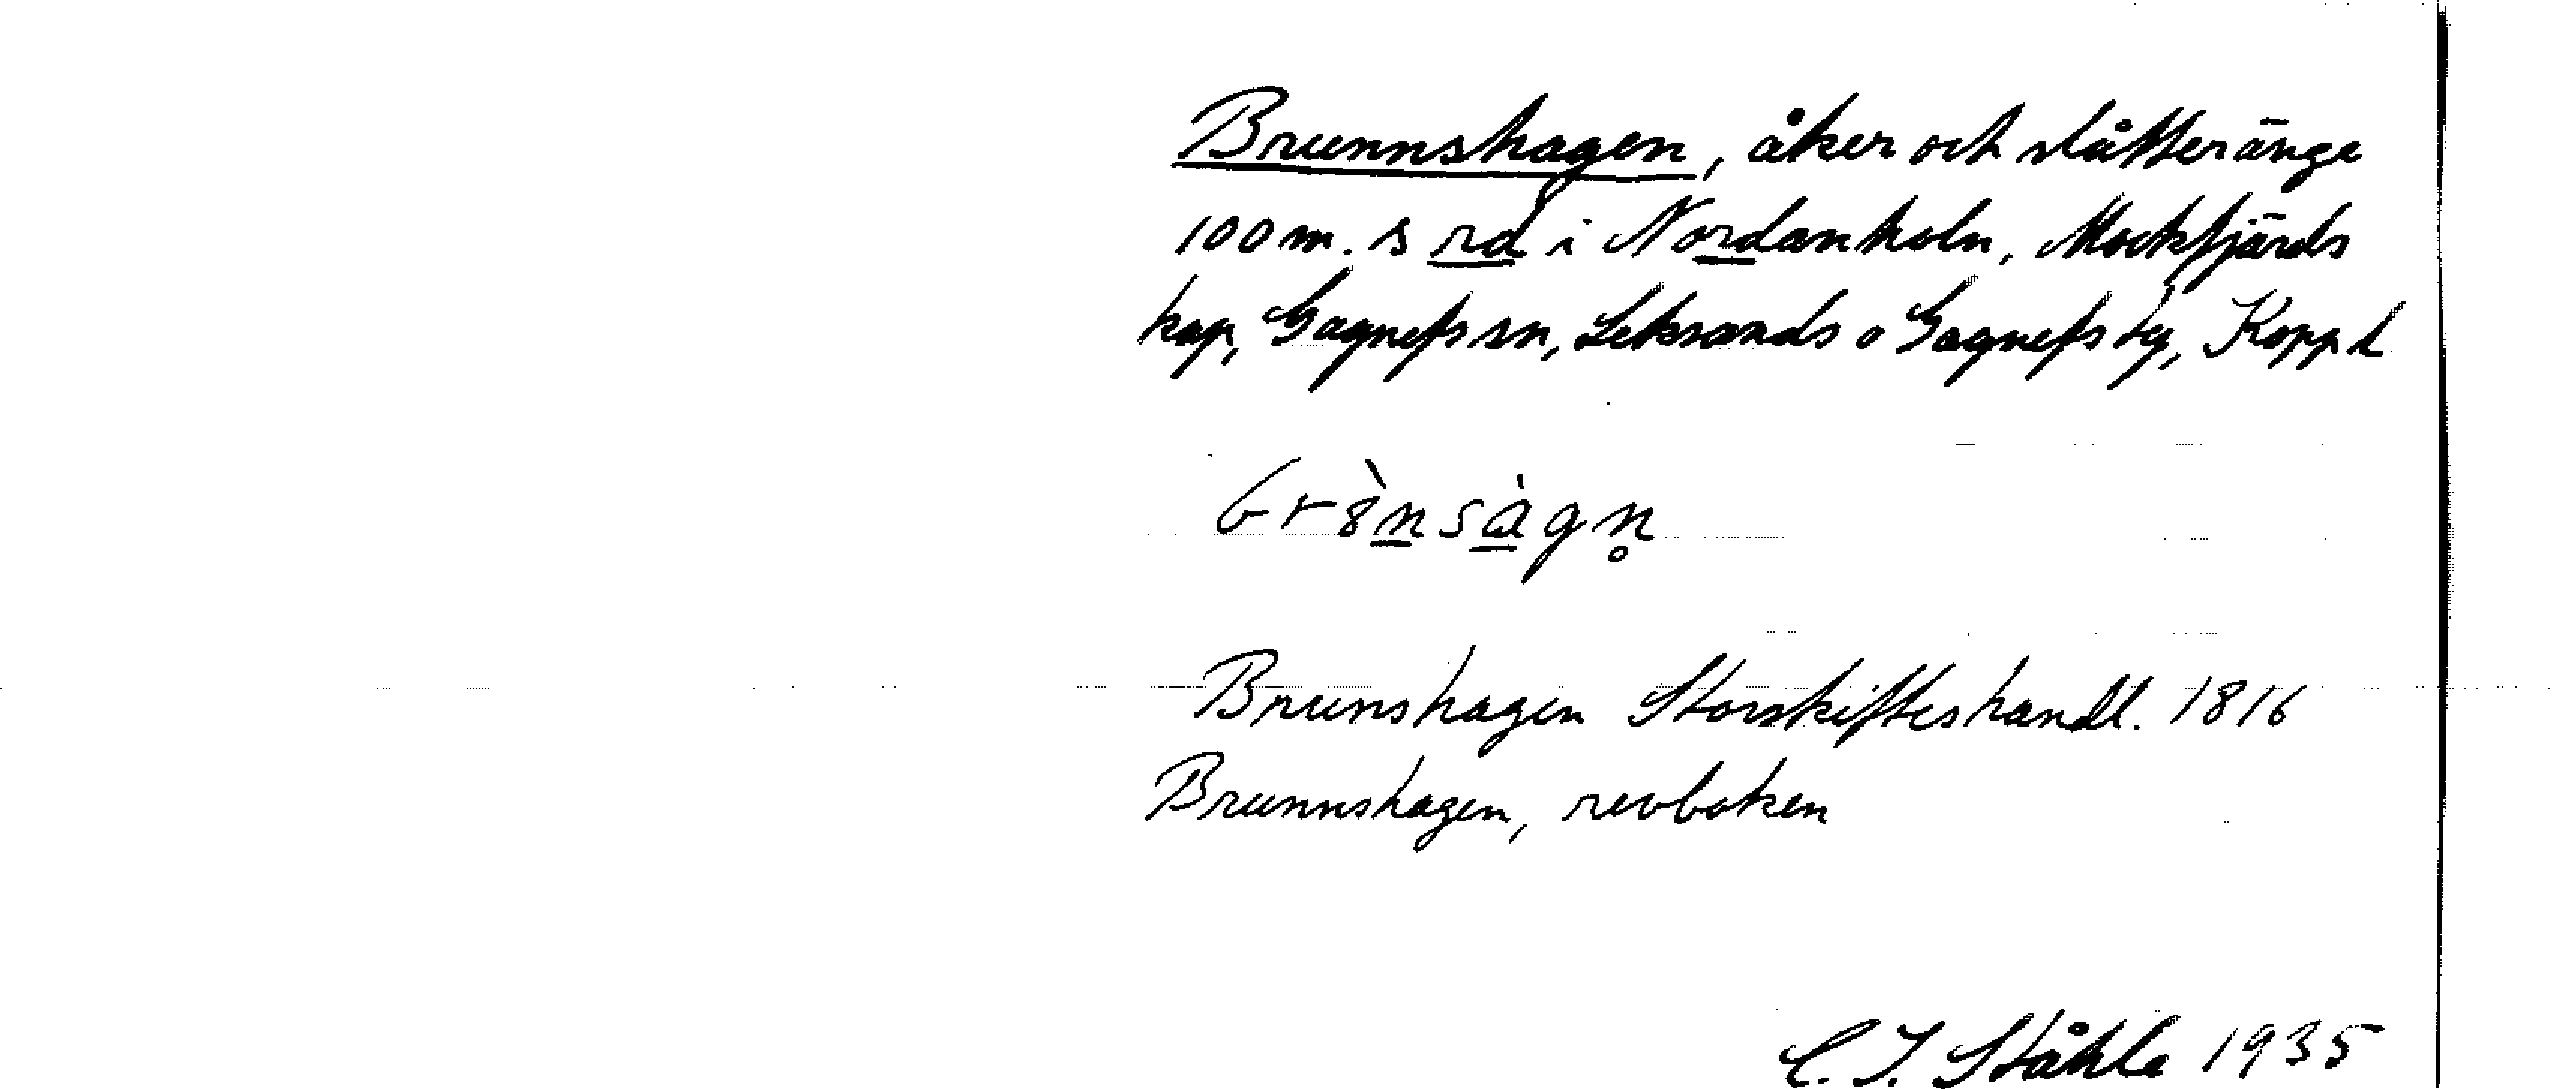 Brunnshagen, åker och slåtteränge
100 m. s rd i Nordanholn, Mockfjärds
kap, Gagnefs sn, Leksands o Gagnefs tg, Kopp l
Brunshagen Storskifteshandl. 1816
Brunnshagen, revboken
C. I. Ståhle 1935